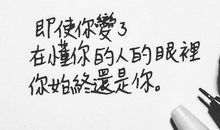 即使你變了
在懂你的人的眼裡
你始終還是你。